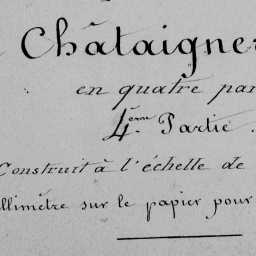 Châtaigner
en quatre par
4ème Partie.
Construit à l'échelle de
llimètre sur le papier pour